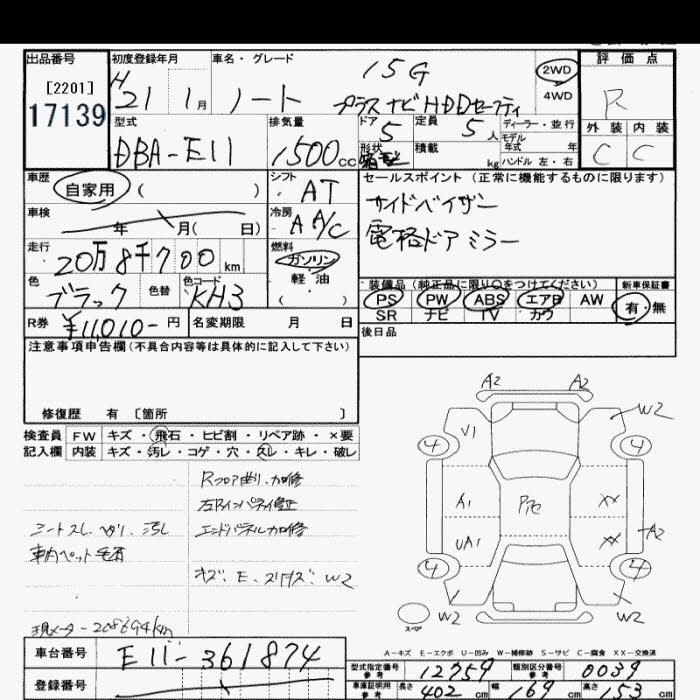 出品番号
[2201]
17139
初度登録年月
H
21 1月
車名・グレード
ノート 15G
プラスナビHDDセーフティ
2WD
4WD
評価点
R
外装 内装
C C
型式
DBA-E11
排気量
1500cc
ドア
5
形状
定員
5人
積載
kg
ディーラー・並行
モデル
年式 年
ハンドル 左・右
車歴
自家用 ( )
シフト
AT
セールスポイント(正常に機能するものに限ります)
サイドバイザー
電格ドアミラー
車検
年 月( 日)
冷房
A A/C
走行
20万8千700km
燃料
ガソリン
軽油
( )
色
ブラック
色替
色コード
KH3
装備品(純正品に限り○をつけてください)
PS PW ABS エアB AW
SR ナビ TV カワ
新車保証書
有・無
R券 ¥11010-円
名変期限 月 日
後日品
注意事項申告欄(不具合内容等は具体的に記入して下さい)
修復歴 有 [箇所 ]
検査員 FW キズ・飛石・ヒビ割・リペア跡・×要
記入欄 内装 キズ・汚レ・コゲ・穴・スレ・キレ・破レ
Rフロア曲り、加修
エンドパネル加修
シートスレ、汚レ
車内ペット毛有
キズ、E、スリキズ、W2
現メーター208694km
A2 A2
W2
V1
4 4
A1 P/C XX
A2
UA1 XX
4 4
W2 W2
スペア
W2
A-キズ E-エクボ U-凹み W-補修跡 S-サビ C-腐食 XX-交換済
車台番号
E11-361874
登録番号
型式指定番号
参考
12759
類別区分番号
参考
0039
車庫証明用
参考
長さ 402 cm 幅 169 cm 高さ 153 cm